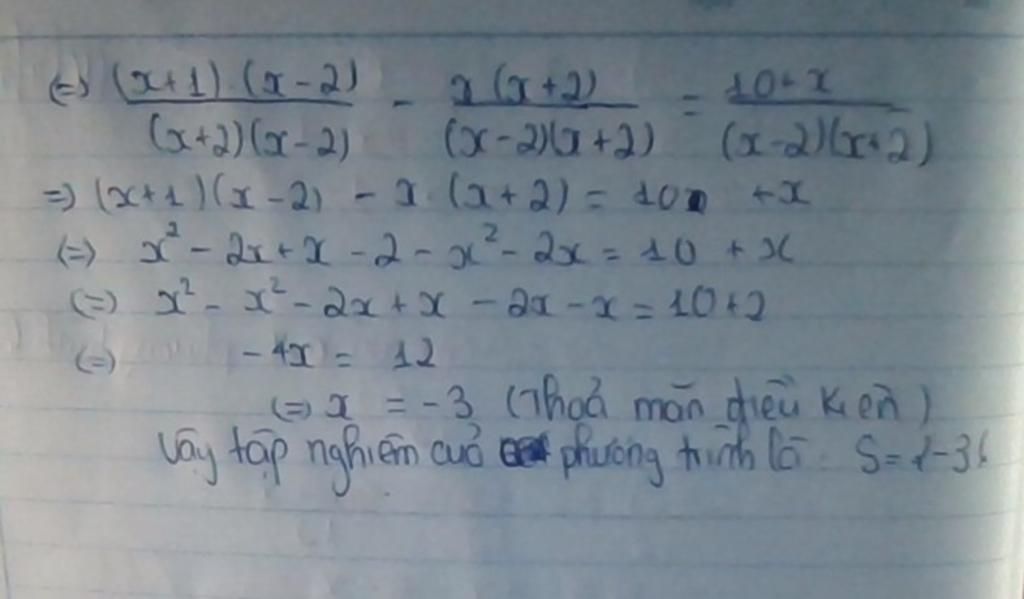 (=) (x+1).(x-2)/(x+2)(x-2) - x(x+2)/(x-2)(x+2) = 10+x/(x-2)(x+2)
=) (x+1)(x-2) - x.(x+2) = 10 +x
(=) x² - 2x + x - 2 - x² - 2x = 10 + x
(=) x² - x² - 2x + x - 2x - x = 10+2
(=) -4x = 12
(=) x = -3 (Thoả mãn điều kiện)
Vậy tập nghiệm của phương trình là S={-3}